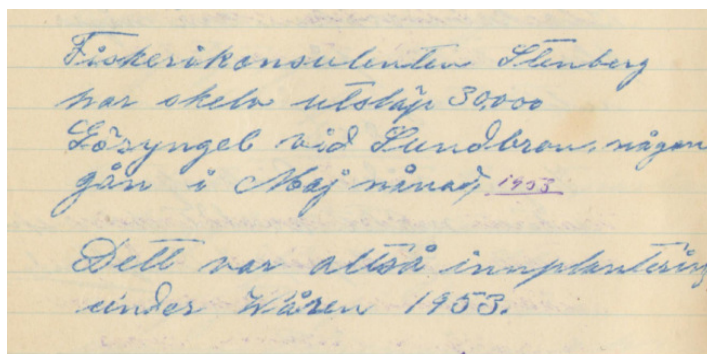 Fiskerikonsulenten Stenberg
har skelv utsläp 30,000
Gösyngel vid Sundbron, någon
gån i Maj månad, 1953
Dett var alltså innplantering
under Wåren 1953.